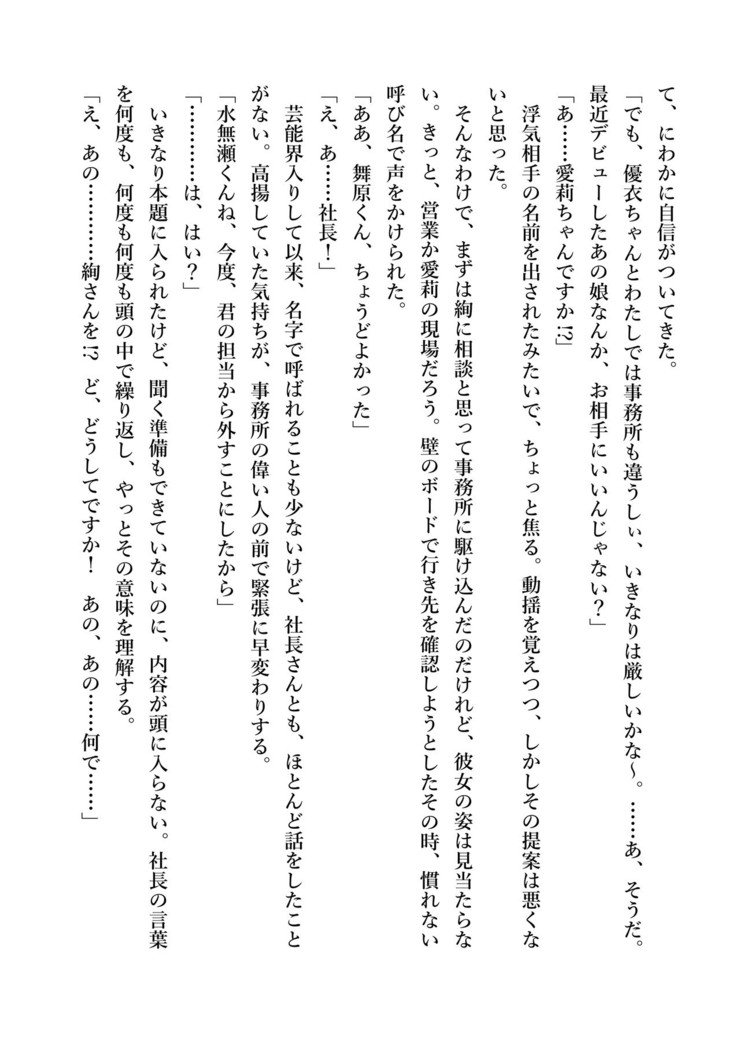 て、にわかに自信がついてきた。
「でも、優衣ちゃんとわたしでは事務所も違うしぃ、いきなりは厳しいかな〜。……あ、そうだ。
最近デビューしたあの娘なんか、お相手にいいんじゃない？」
「あ……愛莉ちゃんですか!?」
　浮気相手の名前を出されたみたいで、ちょっと焦る。動揺を覚えつつ、しかしその提案は悪くな
いと思った。
　そんなわけで、まずは絢に相談と思って事務所に駆け込んだのだけれど、彼女の姿は見当たらな
い。きっと、営業か愛莉の現場だろう。壁のボードで行き先を確認しようとしたその時、慣れない
呼び名で声をかけられた。
「ああ、舞原くん、ちょうどよかった」
「え、あ……社長！」
　芸能界入りして以来、名字で呼ばれることも少ないけど、社長さんとも、ほとんど話をしたこと
がない。高揚していた気持ちが、事務所の偉い人の前で緊張に早変わりする。
「水無瀬くんね、今度、君の担当から外すことにしたから」
「…………は、はい？」
　いきなり本題に入られたけど、聞く準備もできていないのに、内容が頭に入らない。社長の言葉
を何度も、何度も何度も頭の中で繰り返し、やっとその意味を理解する。
「え、あの…………絢さんを!?　ど、どうしてですか！　あの、あの……何で……」